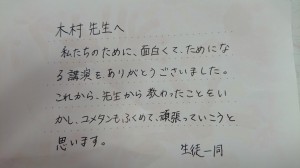 木村先生へ
私たちのために、面白くて、ためにな
る講演をありがとうございました。
これから、先生から教わったことをい
かし、コメタンもふくめて、頑張っていこうと
思います。
生徒一同